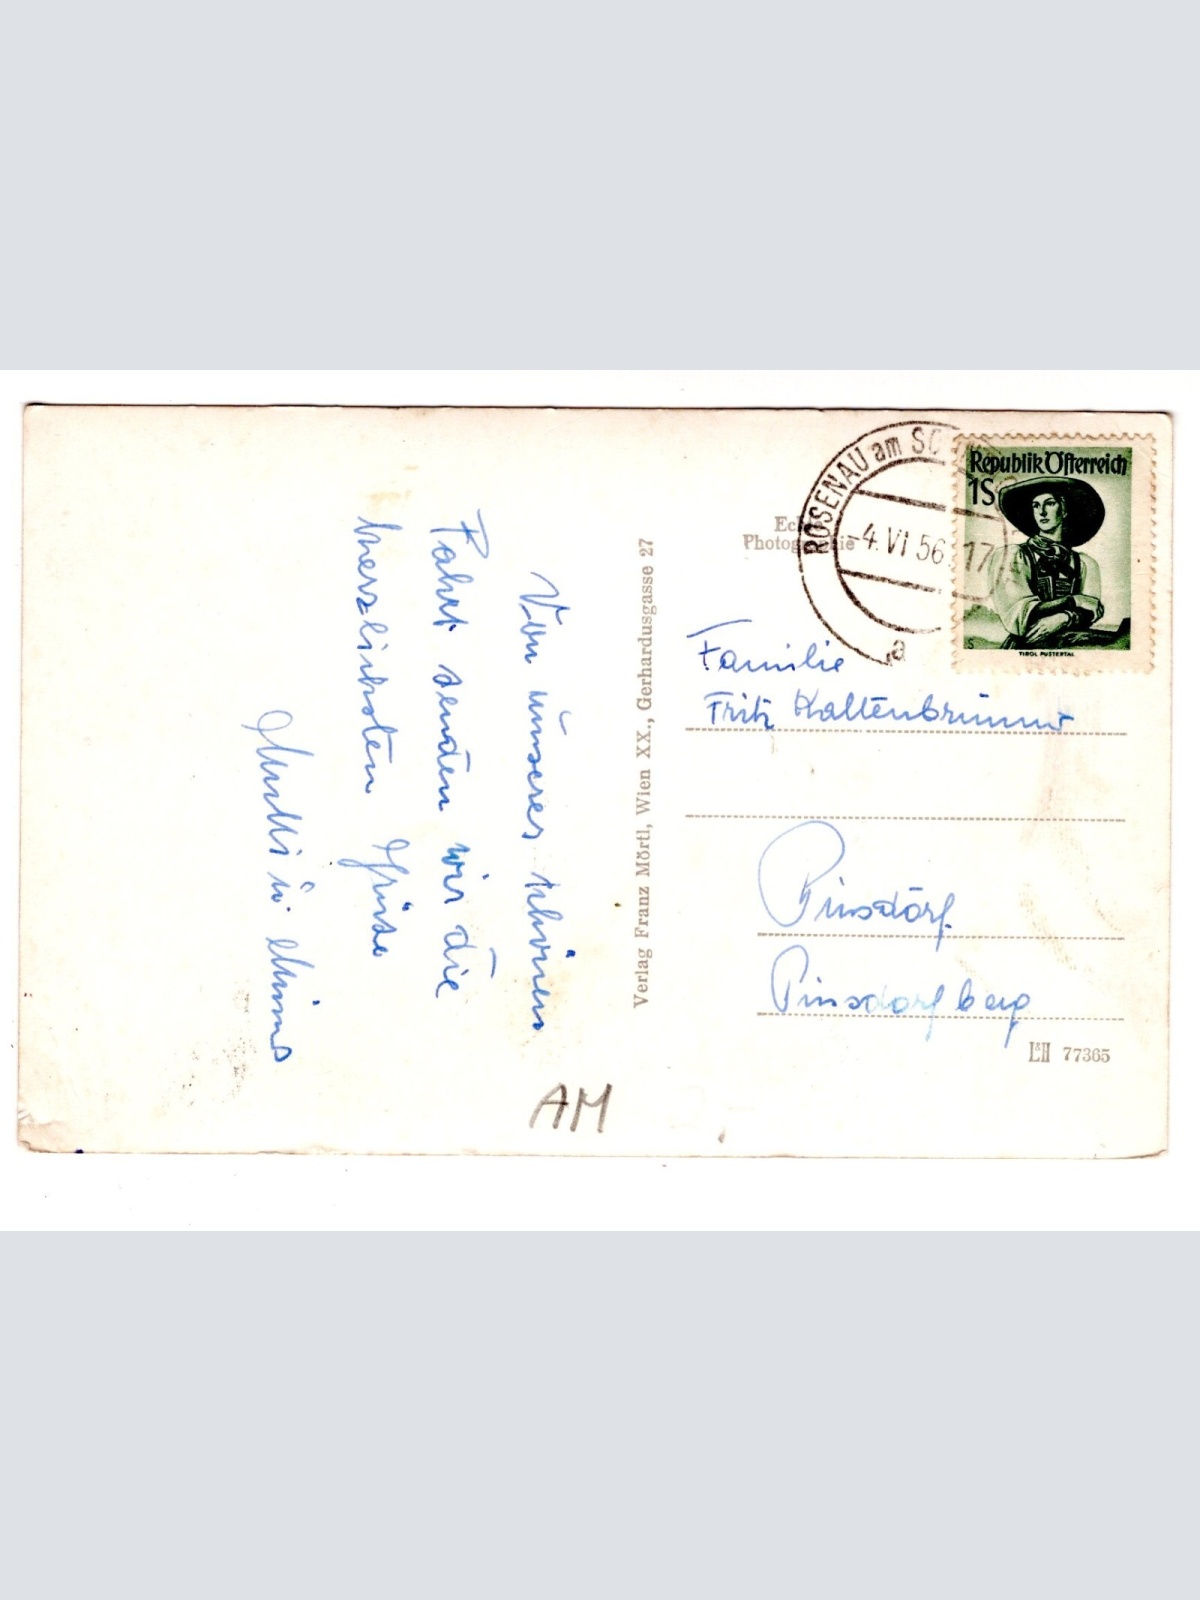 Von unserer schönen
Fahrt senden wir die
herzlichsten Grüße
Mutti u. Minna
AM
Verlag Franz Mörtl, Wien XX., Gerhardusgasse 27
Echte
Photographie
ROSENAU am
-4.VI 56 17
a
Republik Österreich
1S
TIROL PUSTERTAL
Familie
Fritz Kaltenbrunner
Pinsdorf
Pinsdorfberg
L&H 77365